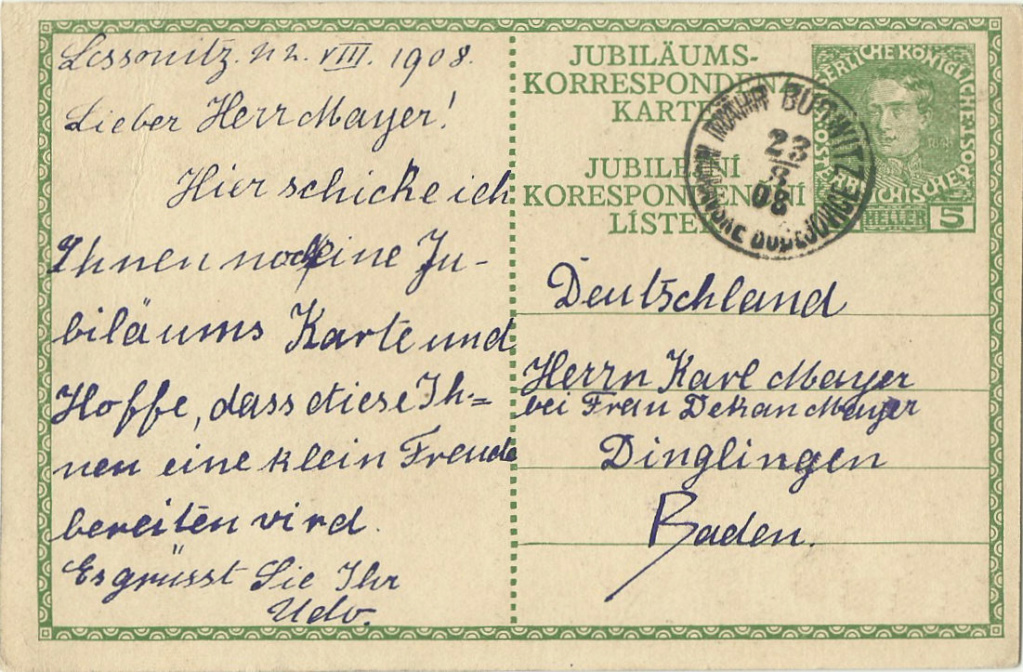 Lessonitz. 22. VIII. 1908.
Lieber Herr Mayer!
Hier schicke ich
Ihnen noch eine Ju-
biläums Karte und
Hoffe, dass diese Ih-
nen eine klein Freude
bereiten wird.
Es grüsst Sie Ihr
Udo.
JUBILÄUMS-
KORRESPONDENZ
KARTE
JUBILEJNÍ
KORESPONDENČNÍ
LÍSTEK
HELLER 5
BUDWITZ
23
8
08
BUDEJOVICE
Deutschland
Herrn Karl Mayer
bei Frau Dekan Mayer
Dinglingen
Baden.